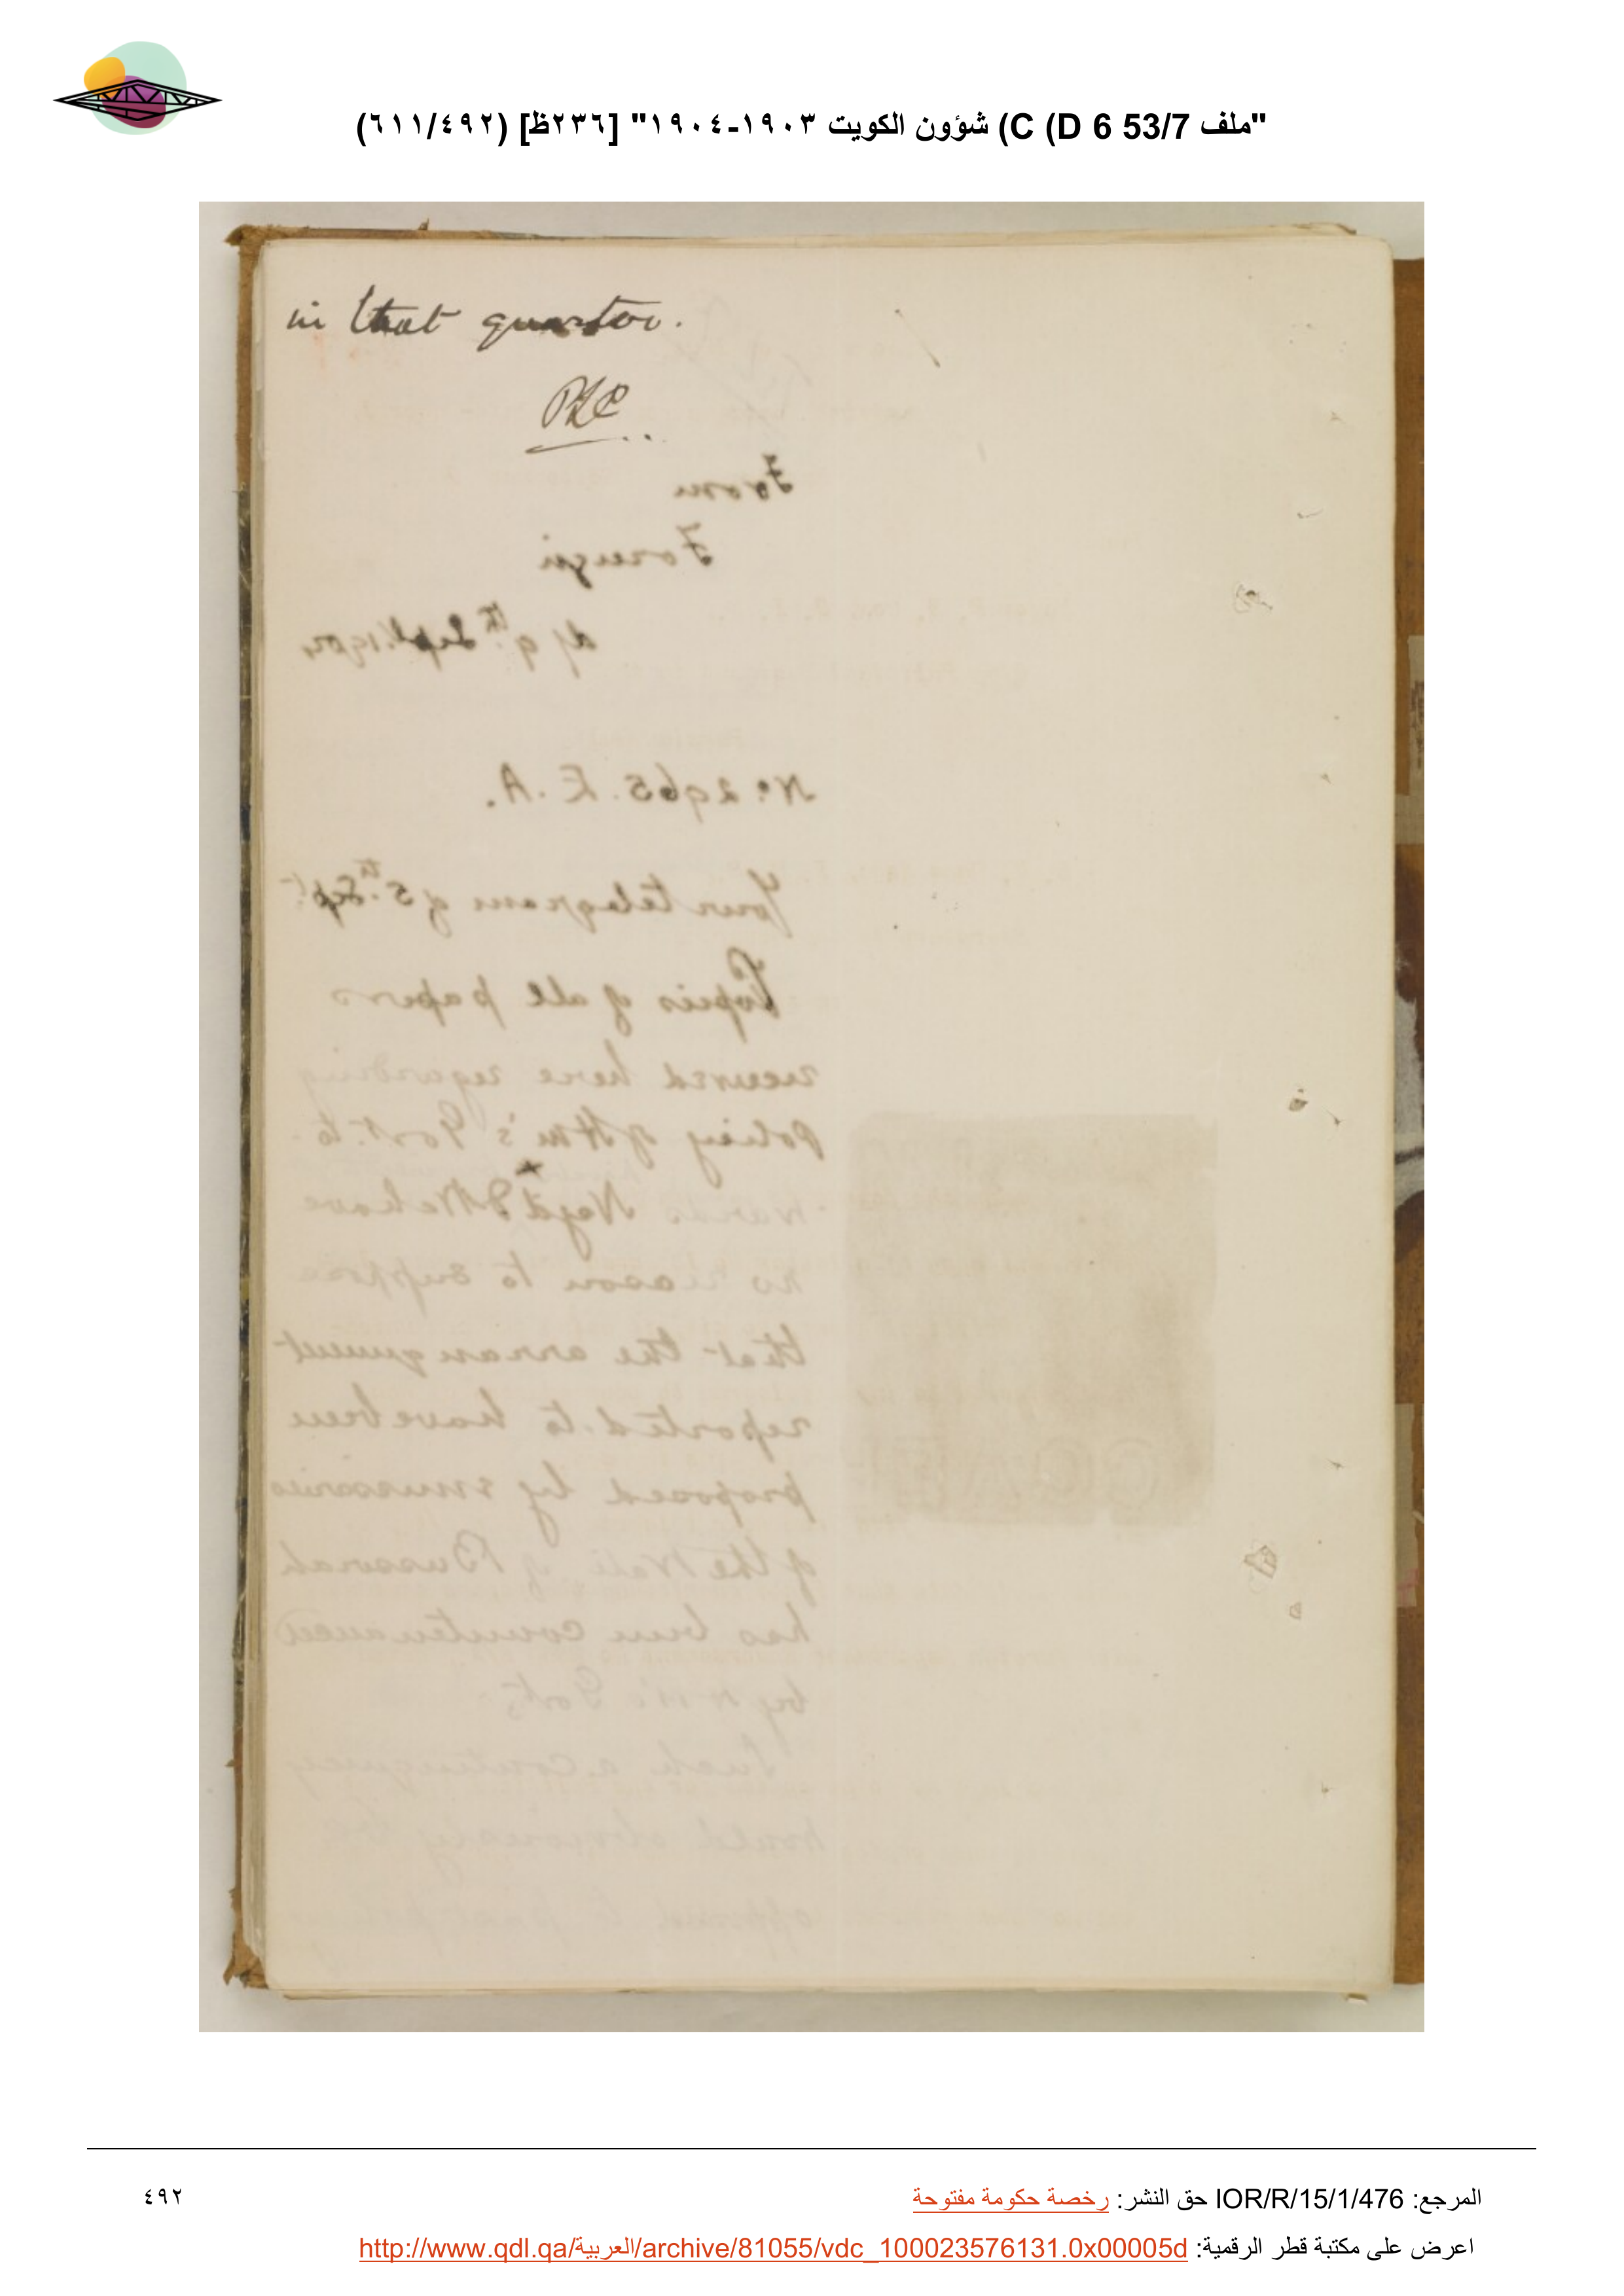 "ملف 53/7 C (D 6) شؤون الكويت ١٩٠٣-١٩٠٤" [٢٣٦ظ] (٤٩٢/٦١١)
in that quarter.
PZC
From
Foreign
d/ 9th Sept. 1904
No. 2965. E. A.
Your telegram of 5th Sept.
Copies of all papers
received here regarding
policy of HM's Govt. to-
wards Nejd We have
no reason to suppose
that the arrangement
reported to have been
proposed by emissaries
of the Wali of Bussorah
has been countenanced
by HM's Govt.
Such a contingency
would obviously be
opposed to
المرجع: IOR/R/15/1/476 حق النشر: رخصة حكومة مفتوحة
٤٩٢
اعرض على مكتبة قطر الرقمية: http://www.qdl.qa/العربية/archive/81055/vdc_100023576131.0x00005d